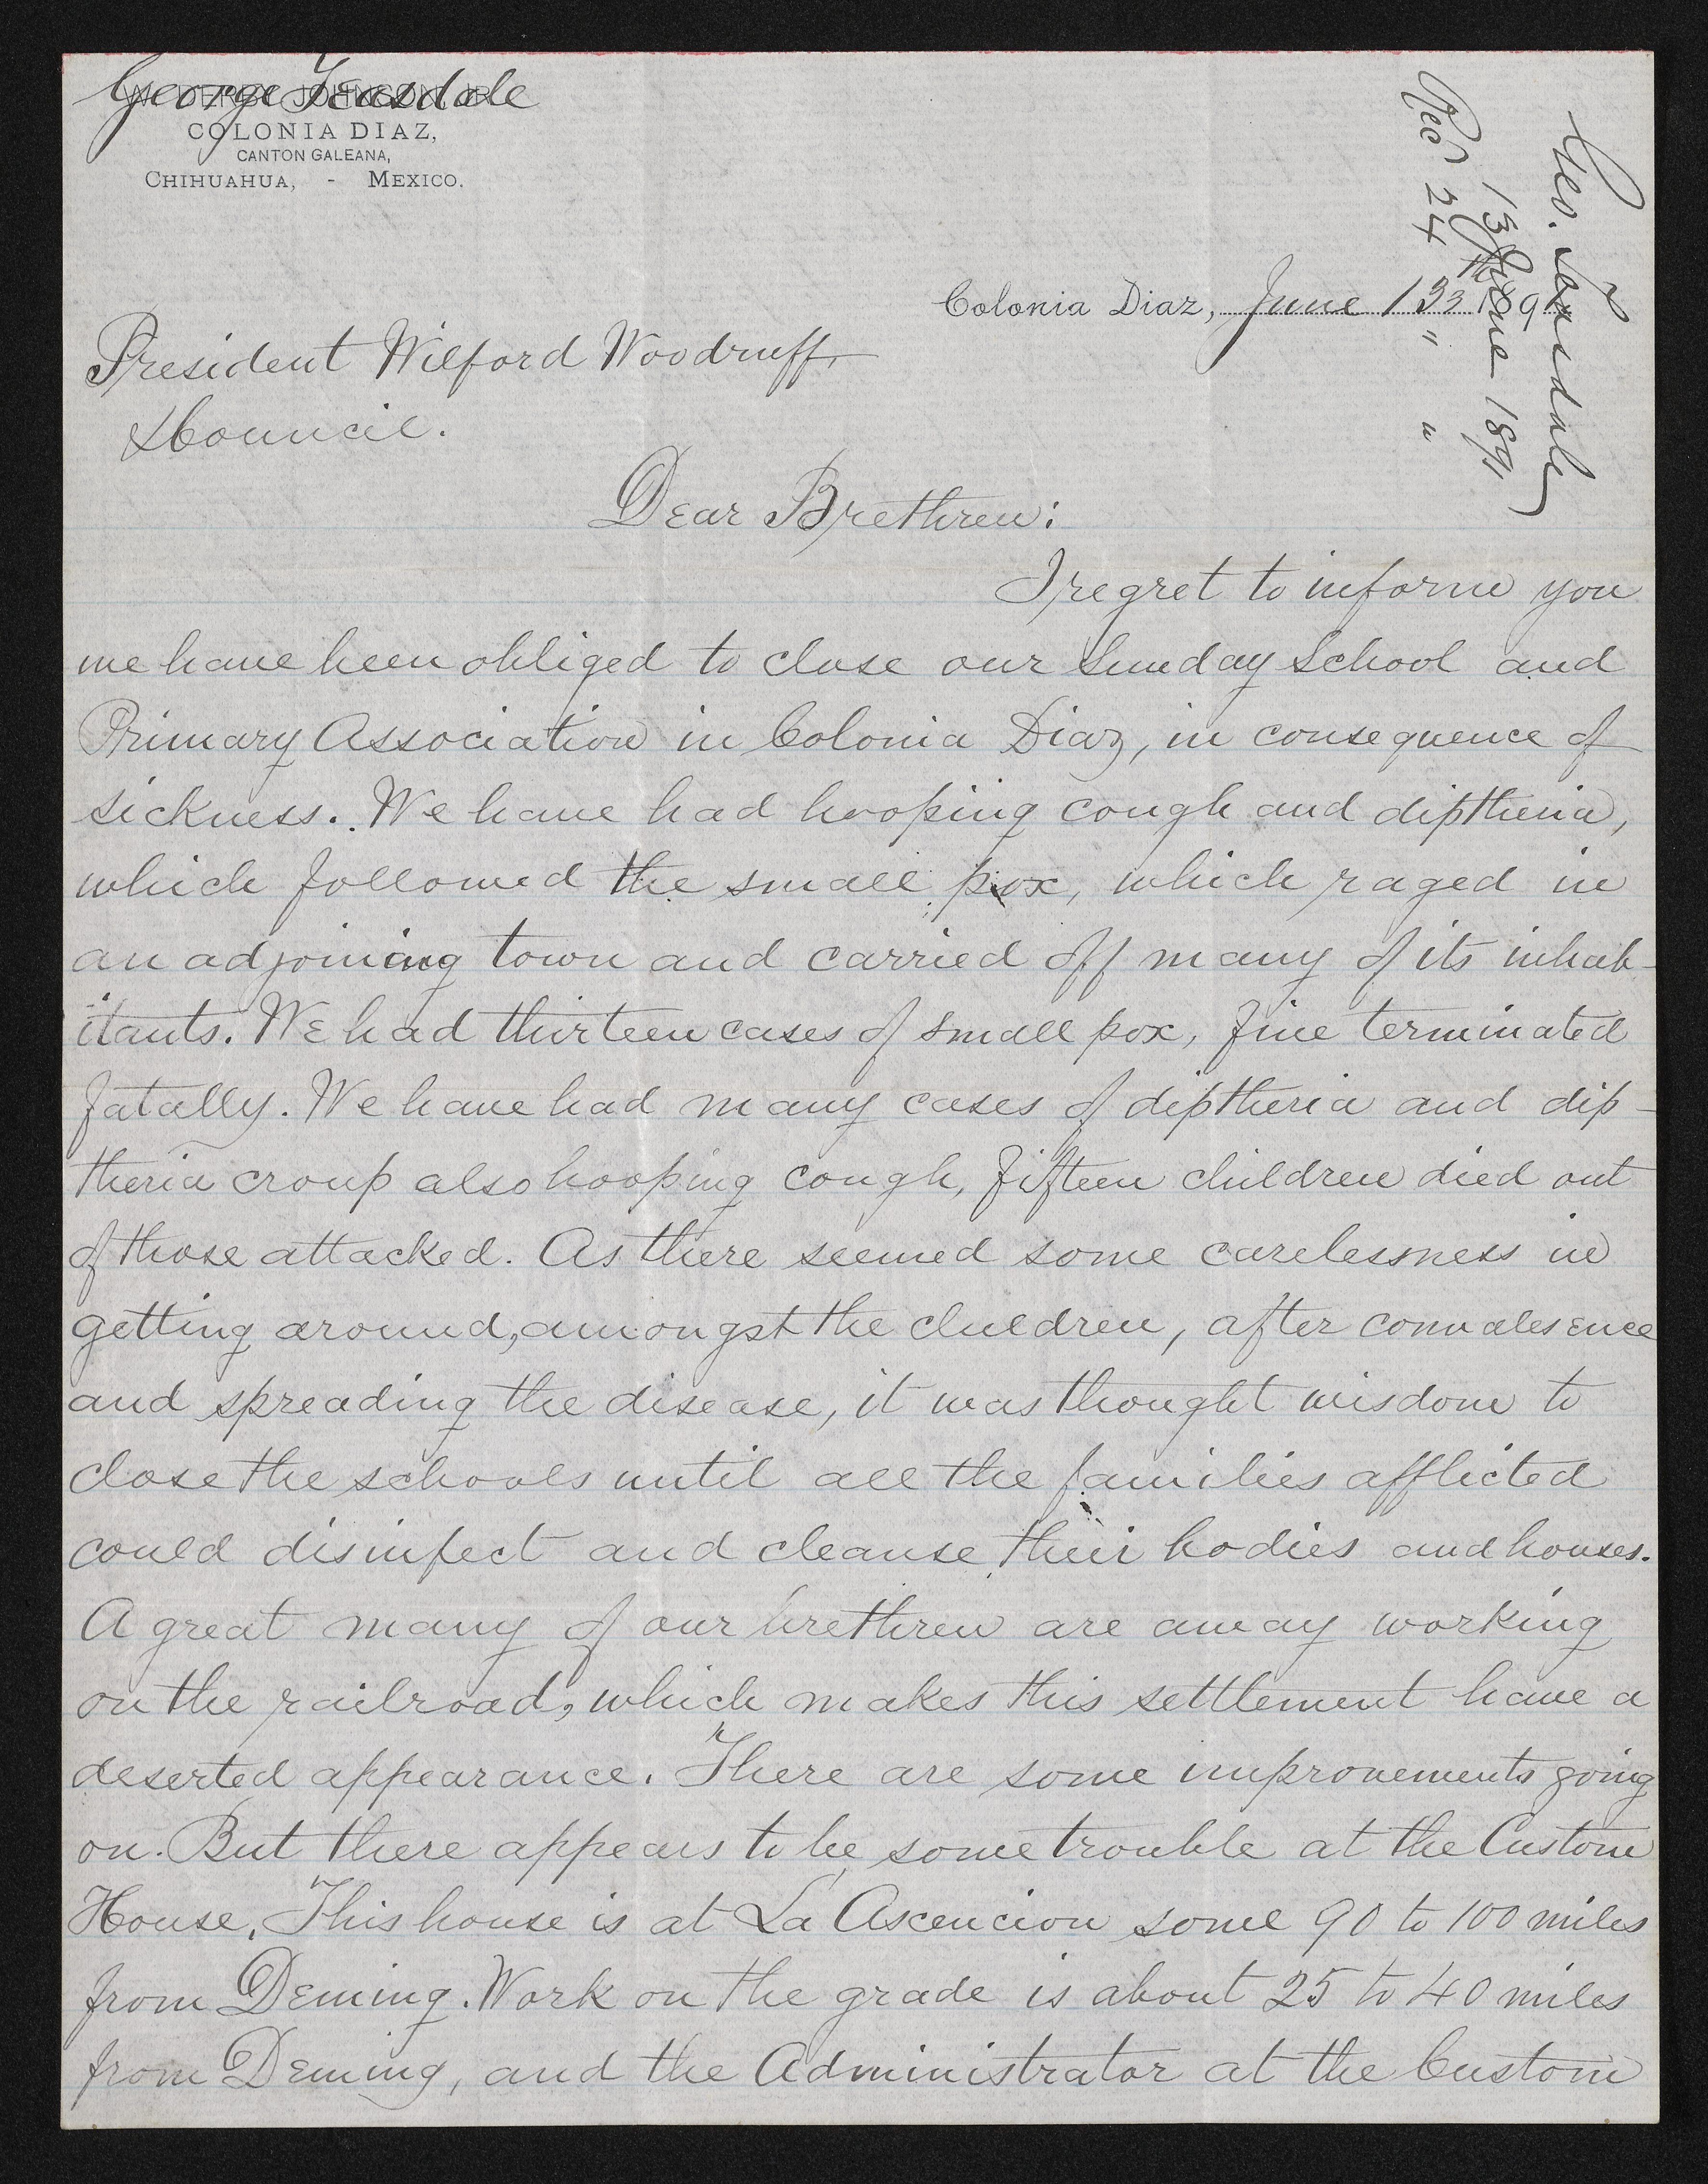 George Teasdale
W. DERBY JOHNSON, JR.
COLONIA DIAZ,
CANTON GALEANA,
CHIHUAHUA, - MEXICO.
Geo. Teasdale
13 June 1891
Recd 24 " "
Colonia Diaz, June 13th 1891
President Wilford Woodruff,
& Council.
Dear Brethren:
I regret to inform you
we have been obliged to close our Sunday School and
Primary Association in Colonia Diaz, in consequence of
sickness. We have had hooping cough and diptheria,
which followed the small pox, which raged in
an adjoining town and carried off many of its inhab-
itants. We had thirteen cases of small pox, five terminated
fatally. We have had many cases of diptheria and dip-
theria croup also hooping cough, fifteen children died out
of those attacked. As there seemed some carelessness in
getting around, amongst the children, after convalesence
and spreading the disease, it was thought wisdom to
close the schools until all the families afflicted
could disinfect and cleanse their bodies and houses.
A great many of our brethren are away working
on the railroad, which makes this settlement have a
deserted appearance. There are some improvements going
on. But there appears to be some trouble at the Custom
House. This house is at La Ascencion some 90 to 100 miles
from Deming. Work on the grade is about 25 to 40 miles
from Deming, and the Administrator at the Custom